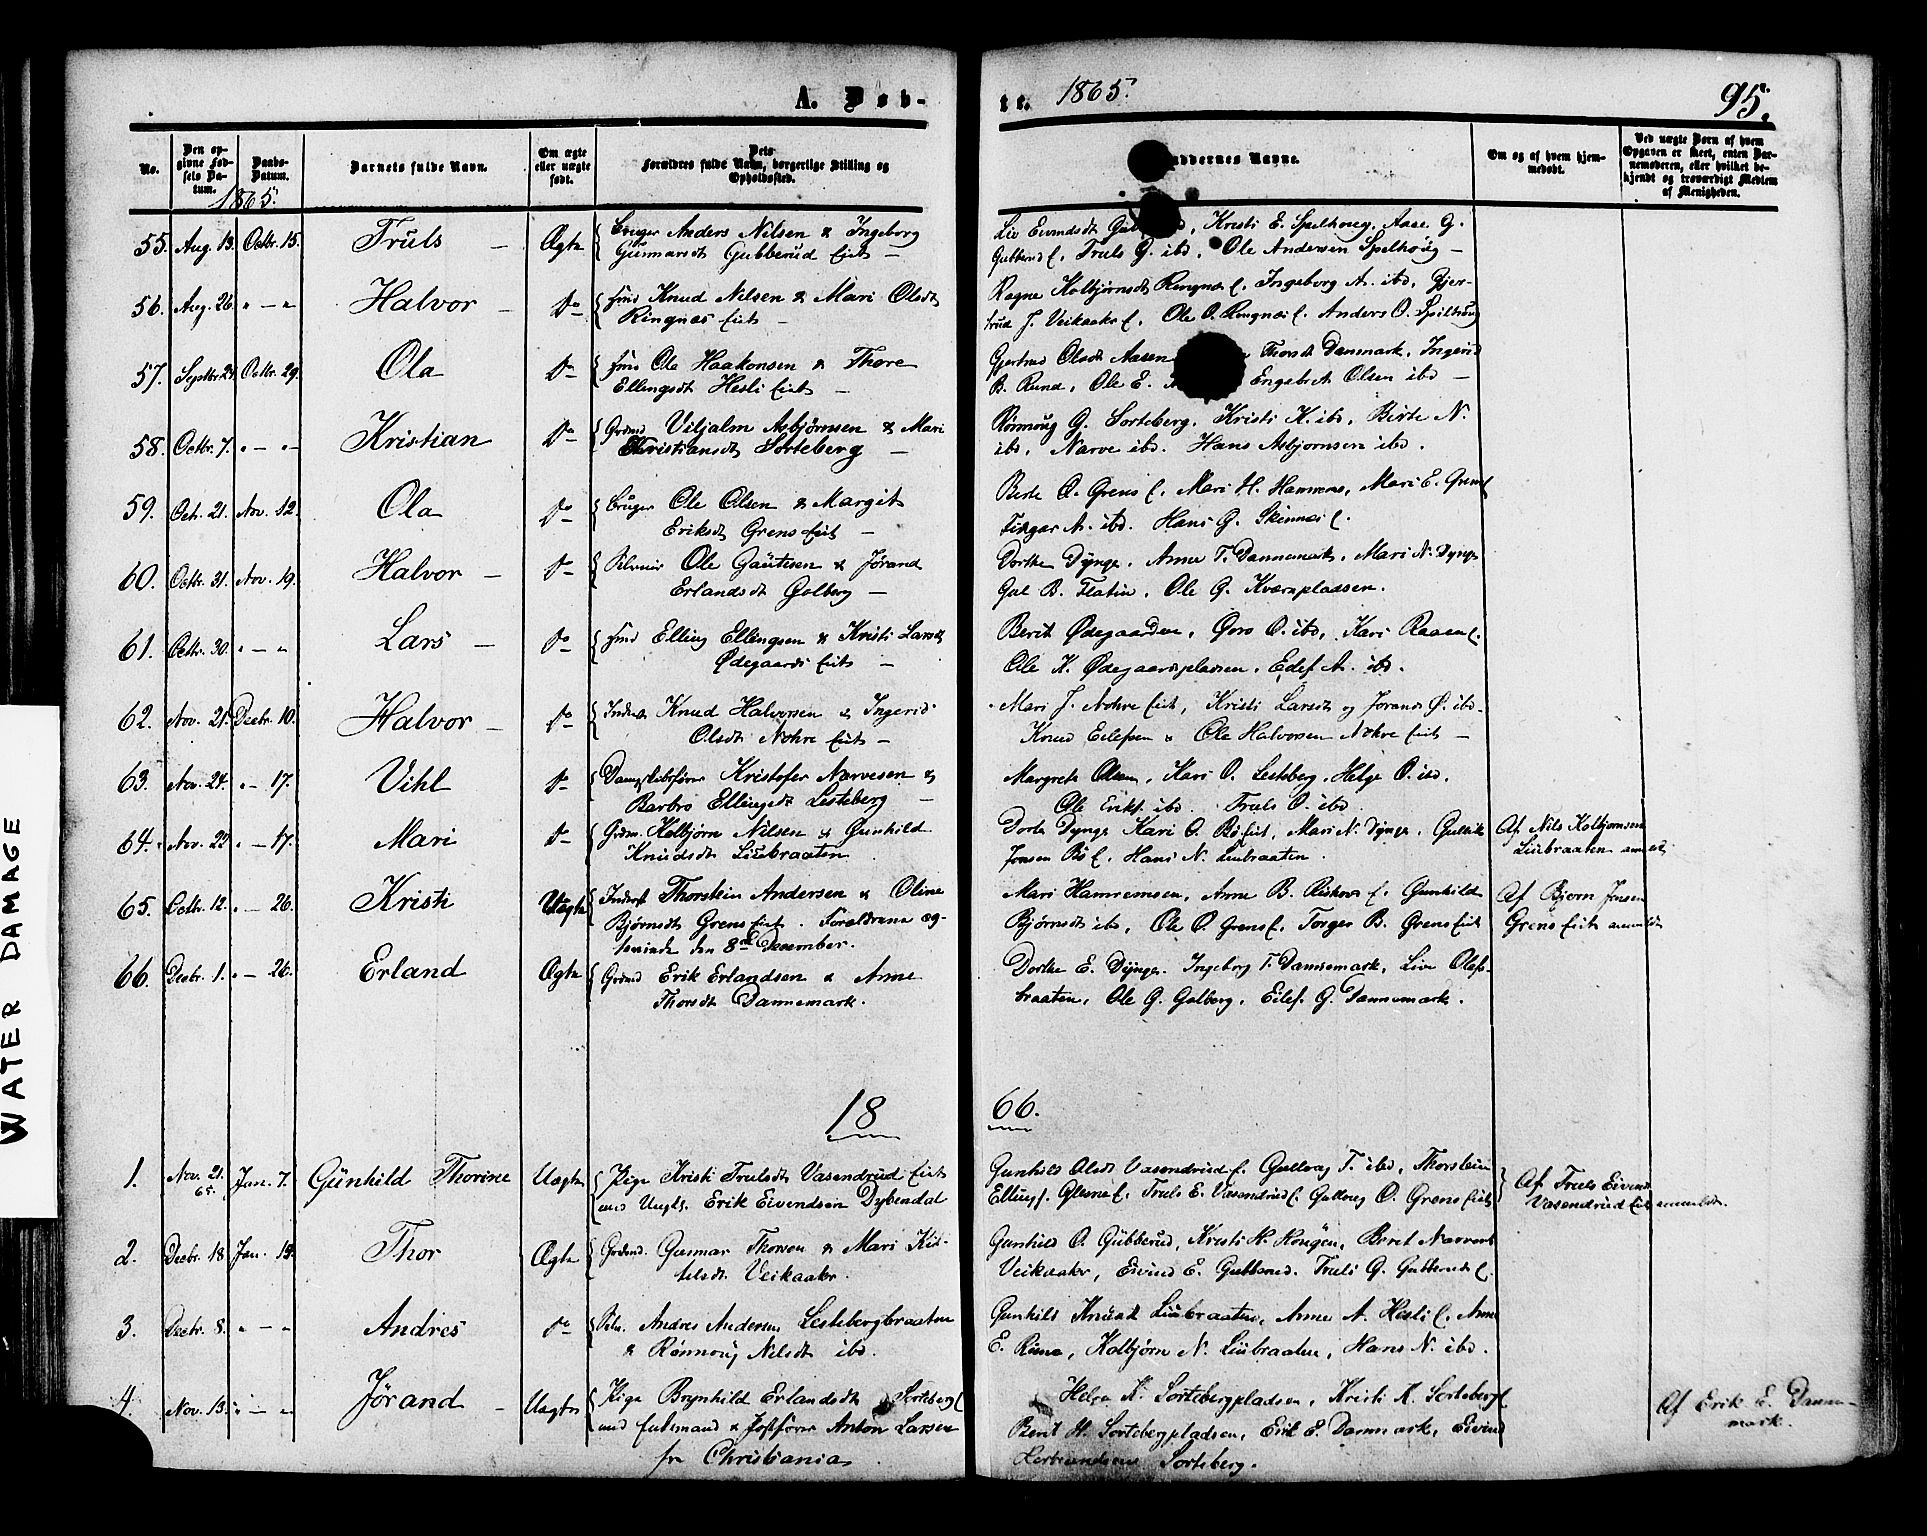 A. Døb-
te. 1865.
95.
No.
Den op-
givne Fød-
sels Da-
tum.
Daabs-
Datum.
Barnets fulde Navn.
Om ægte
eller uægte
født.
Dets
Forældres fulde Navn, borgerlige Stilling og
Opholdssted.
Faddernes Navne.
Om og af hvem hjem-
medøbt.
Ved uægte Børn af hvem
Opgaven er skeet, enten Bar-
nemoderen, eller hvilket be-
kjendt og troværdigt Medlem
af Menigheden.
1865.
55. Aug. 13. Octbr. 15. Truls — Ægte Bruger Anders Nilsen & Ingeborg
Gunnarsdt Gubberud Eiet —
Liv Eivindsdt Kristi E. Spelhoug, Aase G.
Gubberud E. Truls G. ibd. Ole Andersen Spelhoug —
56. Aug. 26. " — " Halvor — Do Knud Nilsen & Mari Olsdt
Ringnes Eiet —
Ragne Kolbjørnsdt Ringnes E. Ingeborg A. ibd, Gjer-
trud J. Veikaaker E. Ole O. Ringnes E. Anders O. Spelhoug
57. Septbr. 29. Octbr. 29. Ola Do Ole Haakonsen & Thore
Ellingsdt Hesli Eiet —
Gjertrud Olsdt Aasen Thorsdt Danmark, Ingerid
B. Rund, Ole E. Engebret Olsen ibd —
58. Octbr. 7. " — " Kristian Do Grdmd Viljalm Asbjørnsen & Mari
Christiansdt Sorteberg —
Rønnoug G. Sorteberg, Kristi K. ibd, Birte N.
ibd, Narve ibd. Hans Asbjørnsen ibd.
59. Octr. 21. Nov. 12. Ola Do Bruger Ole Olsen & Margit
Eriksdt Grens Eiet —
Birte O. Grens E. Mari H. Hamrems, Mari E. Grens E
A. ibd. Hans G. Skinnes E.
60. Octbr. 31. Nov. 19. Halvor — Do Ole Gautesen & Jørand
Erlandsdt Golberg —
Dorthe Dynge, Anne T. Dannemark, Mari N. Dynge
Gul B. Flatin, Ole G. Kværnpladsen.
61. Octbr. 30. " — " Lars — Do Elling Ellingsen & Kristi Larsdt
Ødegaards Eiet —
Berit Ødegaarden, Goro O. ibd, Kari Raaen E.
Ole K. Ødegaardspladsen, Edef A. ibd.
62. Nov. 21. Decbr. 10. Halvor — Do Inderst Knud Halvorsen & Ingerid
Olsdt Nohre Eiet —
Mari J. Nohre Eiet, Kristi Larsdt og Jørand Ø. ibd.
Knud Eilefsen & Ole Halvorsen Nohre Eiet —
63. Nov. 24. " — 17. Vihl Do Kristofer Narvesen &
Barbro Ellingsdt Lesteberg —
Margrete Olsen, Kari O. Lesteberg. Helge O. ibd.
Ole Eriks. ibd. Truls O. ibd.
64. Nov. 29. " — 17. Mari Do Grdm. Kolbjørn Nilsen & Gunhild
Knudsdt Liubraaten
Dorte Dynge Kari O. Bø Eiet, Mari N. Dynge, Gullik
Jonsen Bø E. Hans N. Liubraaten.
Af Nils Kolbjørnsen
Liubraaten anmeldt
65. Octbr. 12. " — 26. Kristi Uægte Inderst Thorstein Andersen & Oline
Bjørnsdt Grens Eiet. Forældrene æg-
teviede den 8de December.
Mari Hamremoen, Anne B. E. Gunhild
Bjørnsdt ibd, Ole O. Grens E. Torger B. Grens Eiet
Af Bjørn Jensen
Grens Eiet anmeldt
66. Decbr. 1. " — 26. Erland Ægte Grdmd Erik Erlandsen & Anne
Thorsdt Dannemark.
Dorthe E. Dynge. Ingeborg T. Dannemark, Live Olafs-
braaten, Ole G. Golberg, Eilef G. Dannemark.
18 66.
1. Nov. 21. 65. Jan. 7. Gunhild Thorine Uægte Pige Kristi Trulsdt Vasendrud Eiet
med Ungk. Erik Eivendsen Dybendal
Gunhild Olsdt Vasendrud E. Gulloug T. ibd, Thorstein
Ellings. Glesne E. Truls E. Vasendrud E. Gulloug O. Grens Eiet
Af Truls Eivend
Vasendrud Eiet anmeldt.
2. Decbr. 18. Jan. 14. Thor Ægte Grdmd. Gunnar Thorsen & Mari Kit-
telsdt. Veikaaker.
Gunhild O. Gubberud, Kristi H. Hougen, Beret Narvesdt
Veikaaker, Eivind E. Gubberud. Truls G. Gubberud E.
3. Decbr. 8. " — " Andres Do Andres Andersen, Lestebergbraaten
& Rønnoug Nilsdt ibd.
Gunhild Knudsdt Liubraaten, Anne A. Hesli E. Anne
E. Rime, Kolbjørn N. Liubraaten, Hans N. ibd.
4. Nov. 13. " — " Jørand — Uægte Pige Brynhild Erlandsdt Sorteberg E
med Enkemand & Anton Larsen
fra Christiania
Helga K. Sortebergpladsen, Kristi K. Sorteberg E
Berit H. Sortebergpladsen, Erik E. Danmark, Eivind
Sorteberg.
Af Erik E. Danne-
mark.
WATER DAMAGE